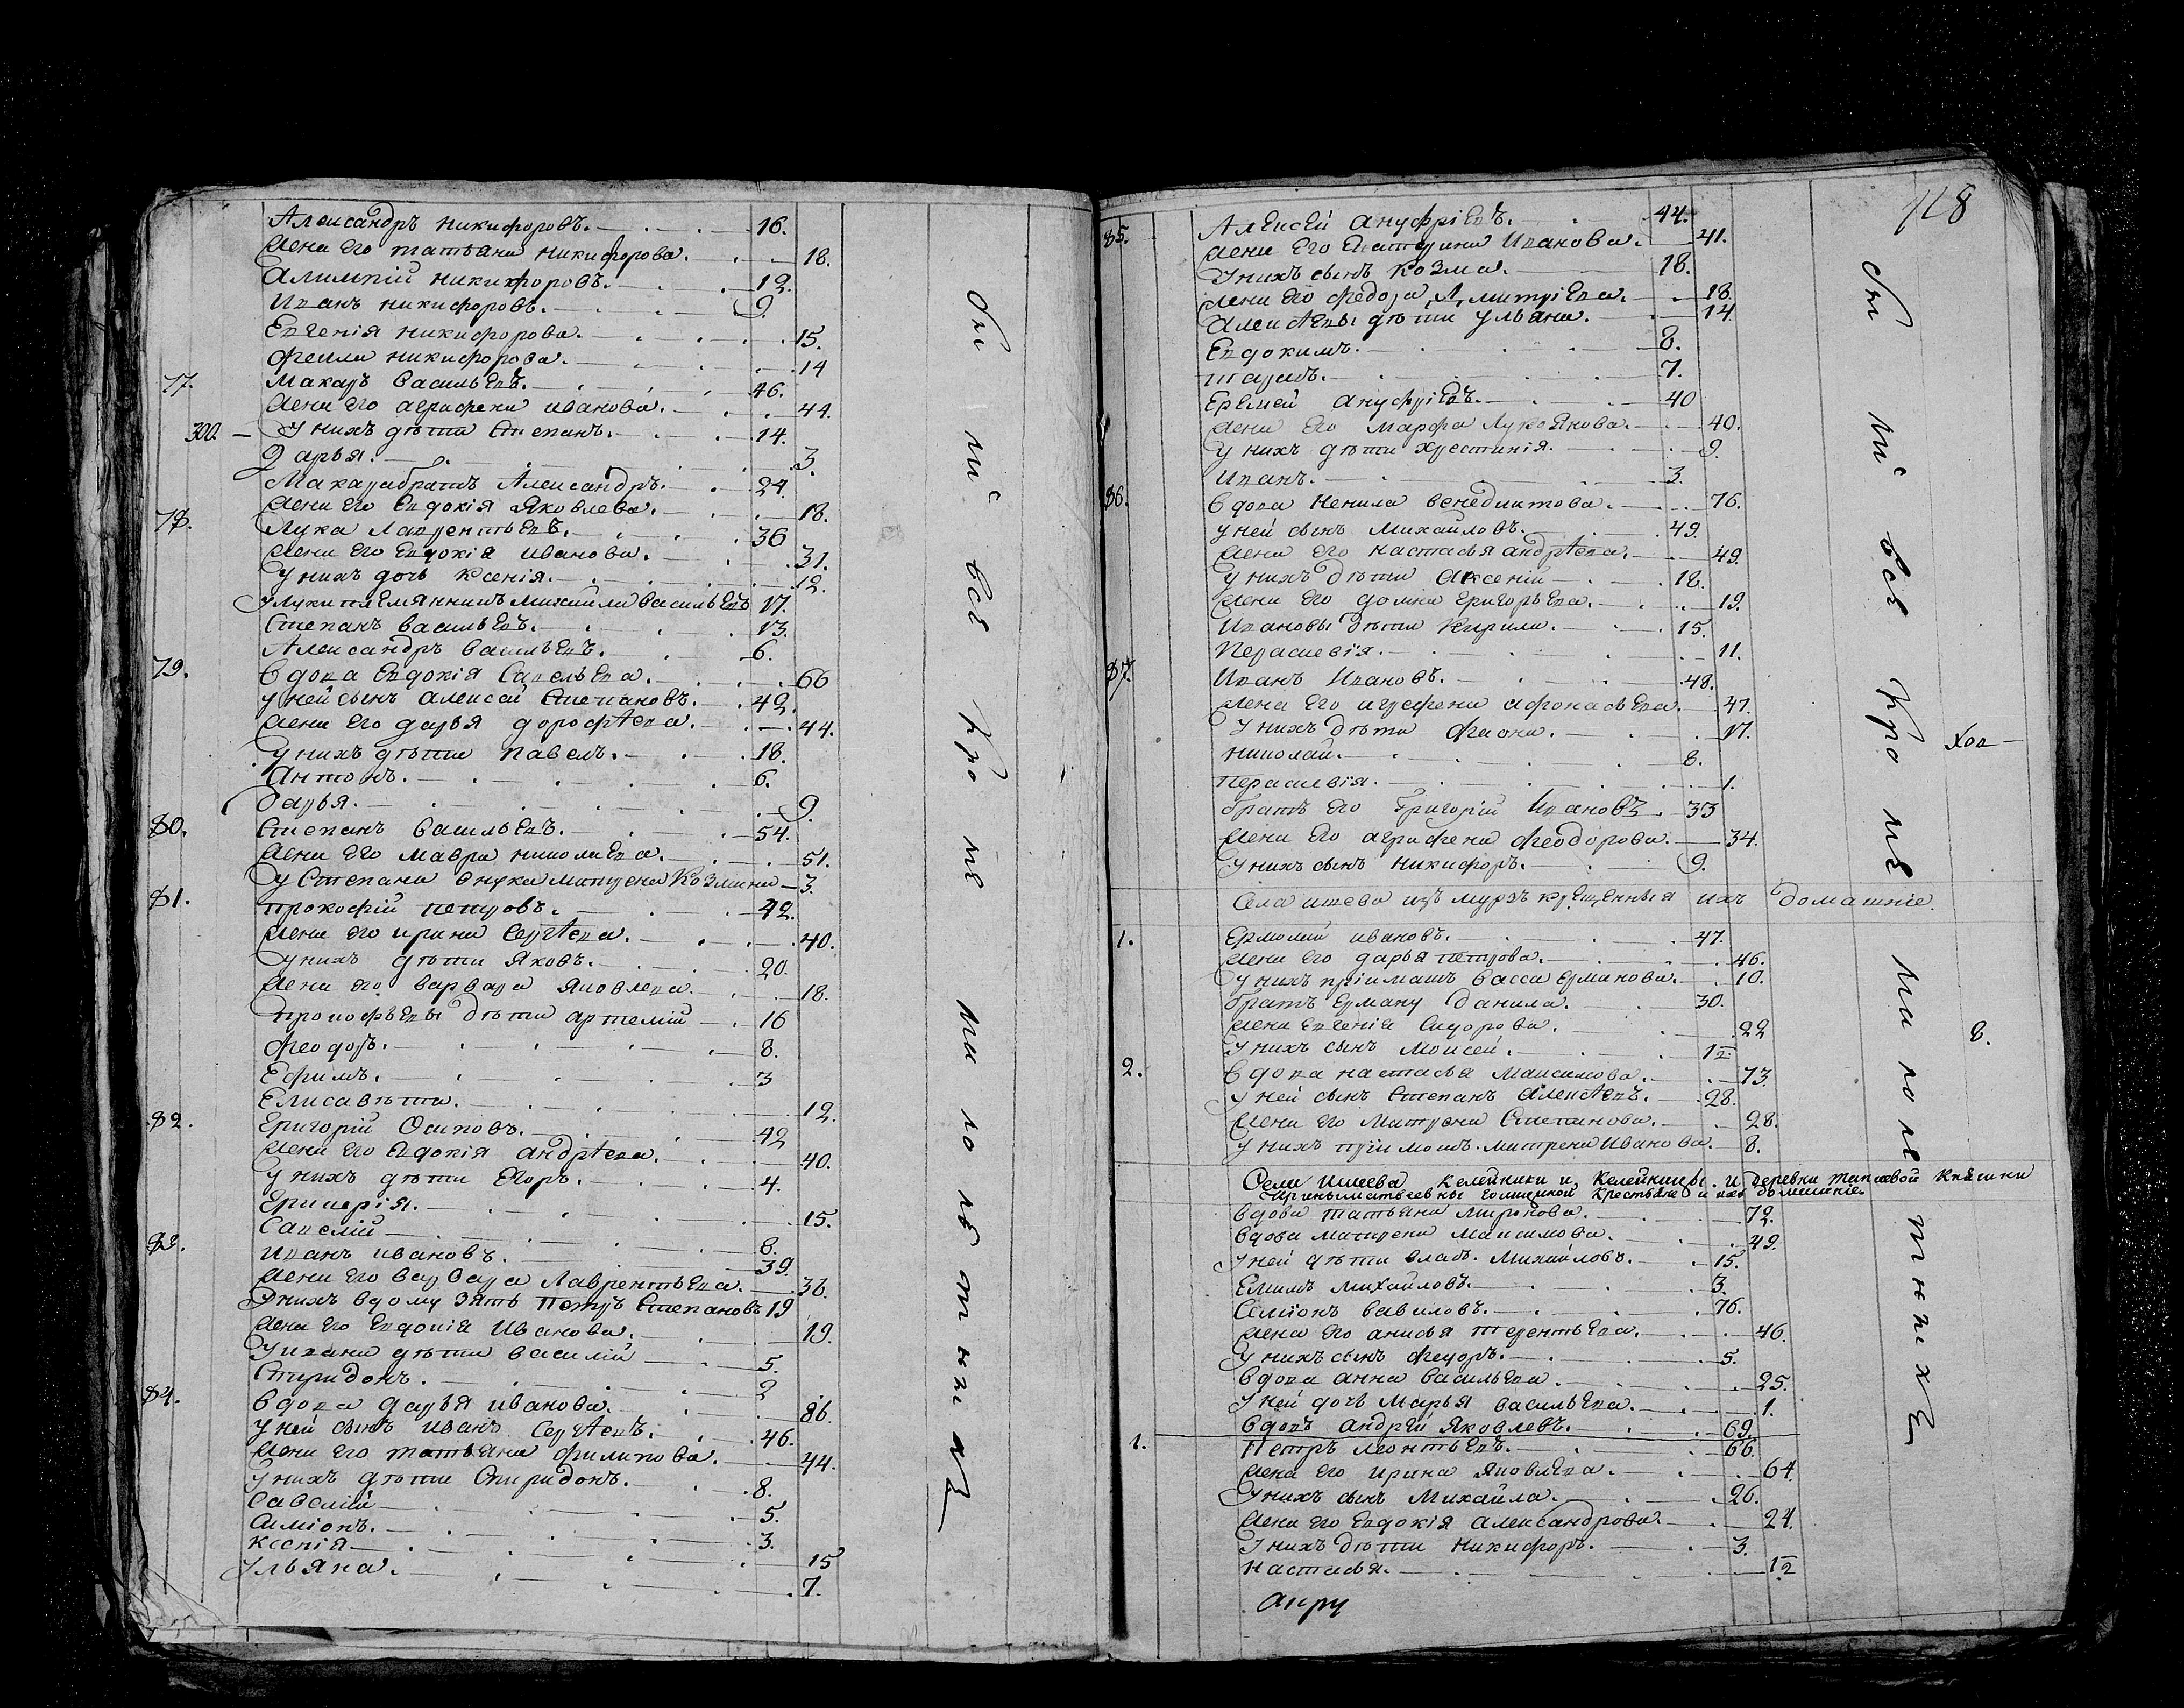 Александръ Никифоровъ. 16.
Жена его Татьяна Никифорова. 18.
Алимпій Никифоровъ. 12.
Иванъ Никифоровъ. 9.
Евгенія Никифорова. 15.
Фекла Никифорова. 14
77. Макаръ Васильевъ. 46.
Жена его Аграфена Иванова. 44.
300. У нихъ дѣти Степанъ. 14.
Дарья. 3.
Макара братъ Александръ. 24.
Жена его Евдокія Яковлева. 18.
78. Лука Лаврентьевъ. 36
Жена его Евдокія Иванова. 31.
У нихъ дочь Ксенія. 12.
У Луки племянникъ Михайла Васильевъ 17.
Степанъ Васильевъ. 13.
Александръ Васильевъ. 6.
79. Вдова Евдокія Савельева. 66
У ней сынъ Алексей Степановъ. 42.
Жена его Дарья Дорофѣева. 44.
У нихъ дѣти Павелъ. 18.
Антонъ. 6.
Дарья. 9.
80. Степанъ Васильевъ. 54.
Жена его Мавра Николаева. 51.
У Степана внука Матрена Козмина 3.
81. Прокофій Петровъ. 42.
Жена его Ирина Сергѣева. 40.
У нихъ дѣти Яковъ. 20.
Жена его Варвара Яковлева. 18.
Прокофьевы дѣти Артемій 16
Феодоръ. 8.
Ефимъ. 3
Елисавѣта. 12.
82. Григорій Осиповъ. 42
Жена его Евдокія Андрѣева. 40.
У нихъ дѣти Егоръ. 4.
Гликерія. 15.
Савелій 8.
83. Иванъ Ивановъ. 39.
Жена его Варвара Лаврентьева. 36.
У нихъ в дому зять Петръ Степановъ 19
Жена его Евдокія Иванова. 19.
У Ивана дѣти Василій 5.
Спиридонъ. 2
84. Вдова Дарья Иванова. 86.
У ней сынъ Иванъ Сергѣевъ. 46.
Жена его Татьяна Филипова. 44.
У нихъ дѣти Спиридонъ. 8.
Савелій 5.
Симіонъ. 3.
Ксенія 15
Ульяна. 7.
всѣ кроме малолѣтнихъ
118
85. Алексѣй Ануфріевъ. 44.
Жена его Екатерина Иванова. 41.
У нихъ сынъ Козма. 18.
Жена его Федора Дмитріева. 18.
Алексѣевы дѣти Ульяна. 14.
Евдокимъ. 8.
Тарасъ. 7.
Еремей Ануфріевъ. 40
Жена его Марфа Лукоянова. 40.
У нихъ дѣти Хрестинія. 9.
Иванъ. 3.
86. Вдова Ненила Венедиктова. 76.
У ней сынъ Михайловъ. 49.
Жена его Настасья Андрѣева. 49.
У нихъ дѣти Аксеній 18.
Жена его Домна Григорьева. 19.
Ивановы дѣти Кирила. 15.
Перасковія. 11.
87. Иванъ Ивановъ. 48.
Жена его Агрофена Афонасьева. 47.
У нихъ дѣти Фиона. 17.
Николай. 8.
Перасковія. 1.
Братъ его Григорій Ивановъ. 33
Жена его Агрифена Феодорова. 34.
У нихъ сынъ Никифоръ. 9.
Села Ишева изъ мурзъ крещенныя ихъ домашніе.
1. Ермолай Ивановъ. 47.
Жена его Дарья Петрова. 46.
У нихъ пріимашъ Васса Ерманова. 10.
Братъ Ерману Данила. 30.
Жена Евгенія Сидорова. 22
У нихъ сынъ Моисей. 12.
8.
2. Вдова Настасья Максимова. 73.
У ней сынъ Степанъ Алексѣевъ. 28.
Жена его Матрена Степанова. 28.
У нихъ пріимошъ Матрена Иванова. 8.
Села Ишеева келейники и келейницы. и деревни княжни
крестьяне и ихъ домашніе
Вдова Татьяна Миронова. 72.
Вдова Матрена Максимова. 49.
У ней дѣти Михайловъ. 15.
Михайловъ. 3.
Семіонъ Вавиловъ. 76.
Жена его Анисья Терентьева. 46.
У нихъ сынъ Федоръ. 5.
Вдова Анна Васильева. 25.
У ней дочь Марья Васильева. 1.
Вдовъ Андрей Яковлевъ. 69.
1. Петръ Леонтьевъ. 66.
Жена его Ирина Яковлева. 64.
У нихъ сынъ Михайла. 26.
Жена его Евдокія Александрова. 24.
У нихъ дѣти Никифоръ. 3.
Настасья. 12
всѣ кроме малолетнихъ